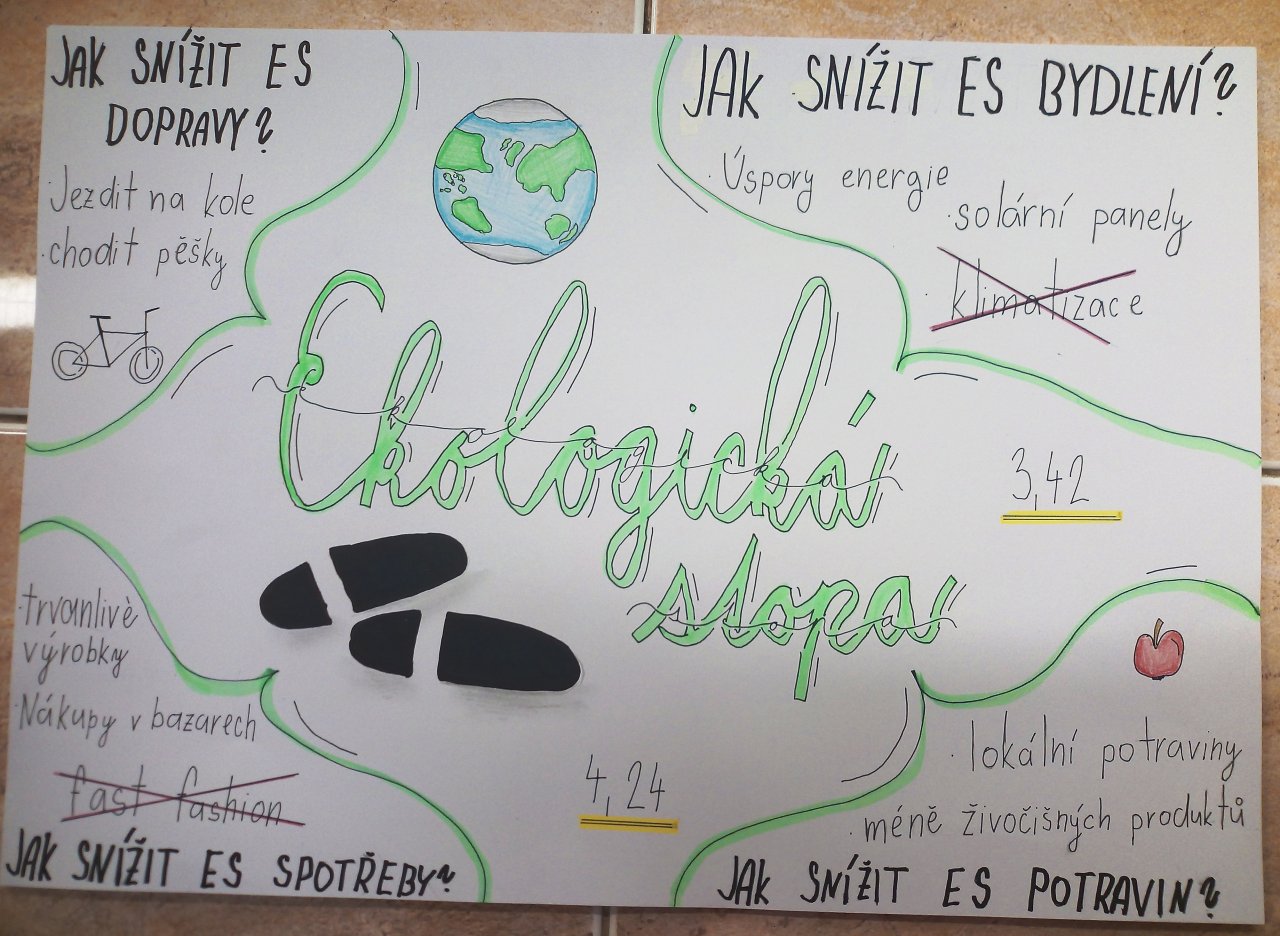 JAK SNÍŽIT ES
DOPRAVY?
· Jezdit na kole
· chodit pěšky
JAK SNÍŽIT ES BYDLENÍ?
· Úspory energie
· solární panely
· klimatizace
Ekologická
stopa
3,42
4,24
· trvanlivè
výrobky
· Nákupy v bazarech
fast fashion
JAK SNÍŽIT ES SPOTŘEBY?
· lokální potraviny
· méně živočišných produktů
JAK SNÍŽIT ES POTRAVIN?